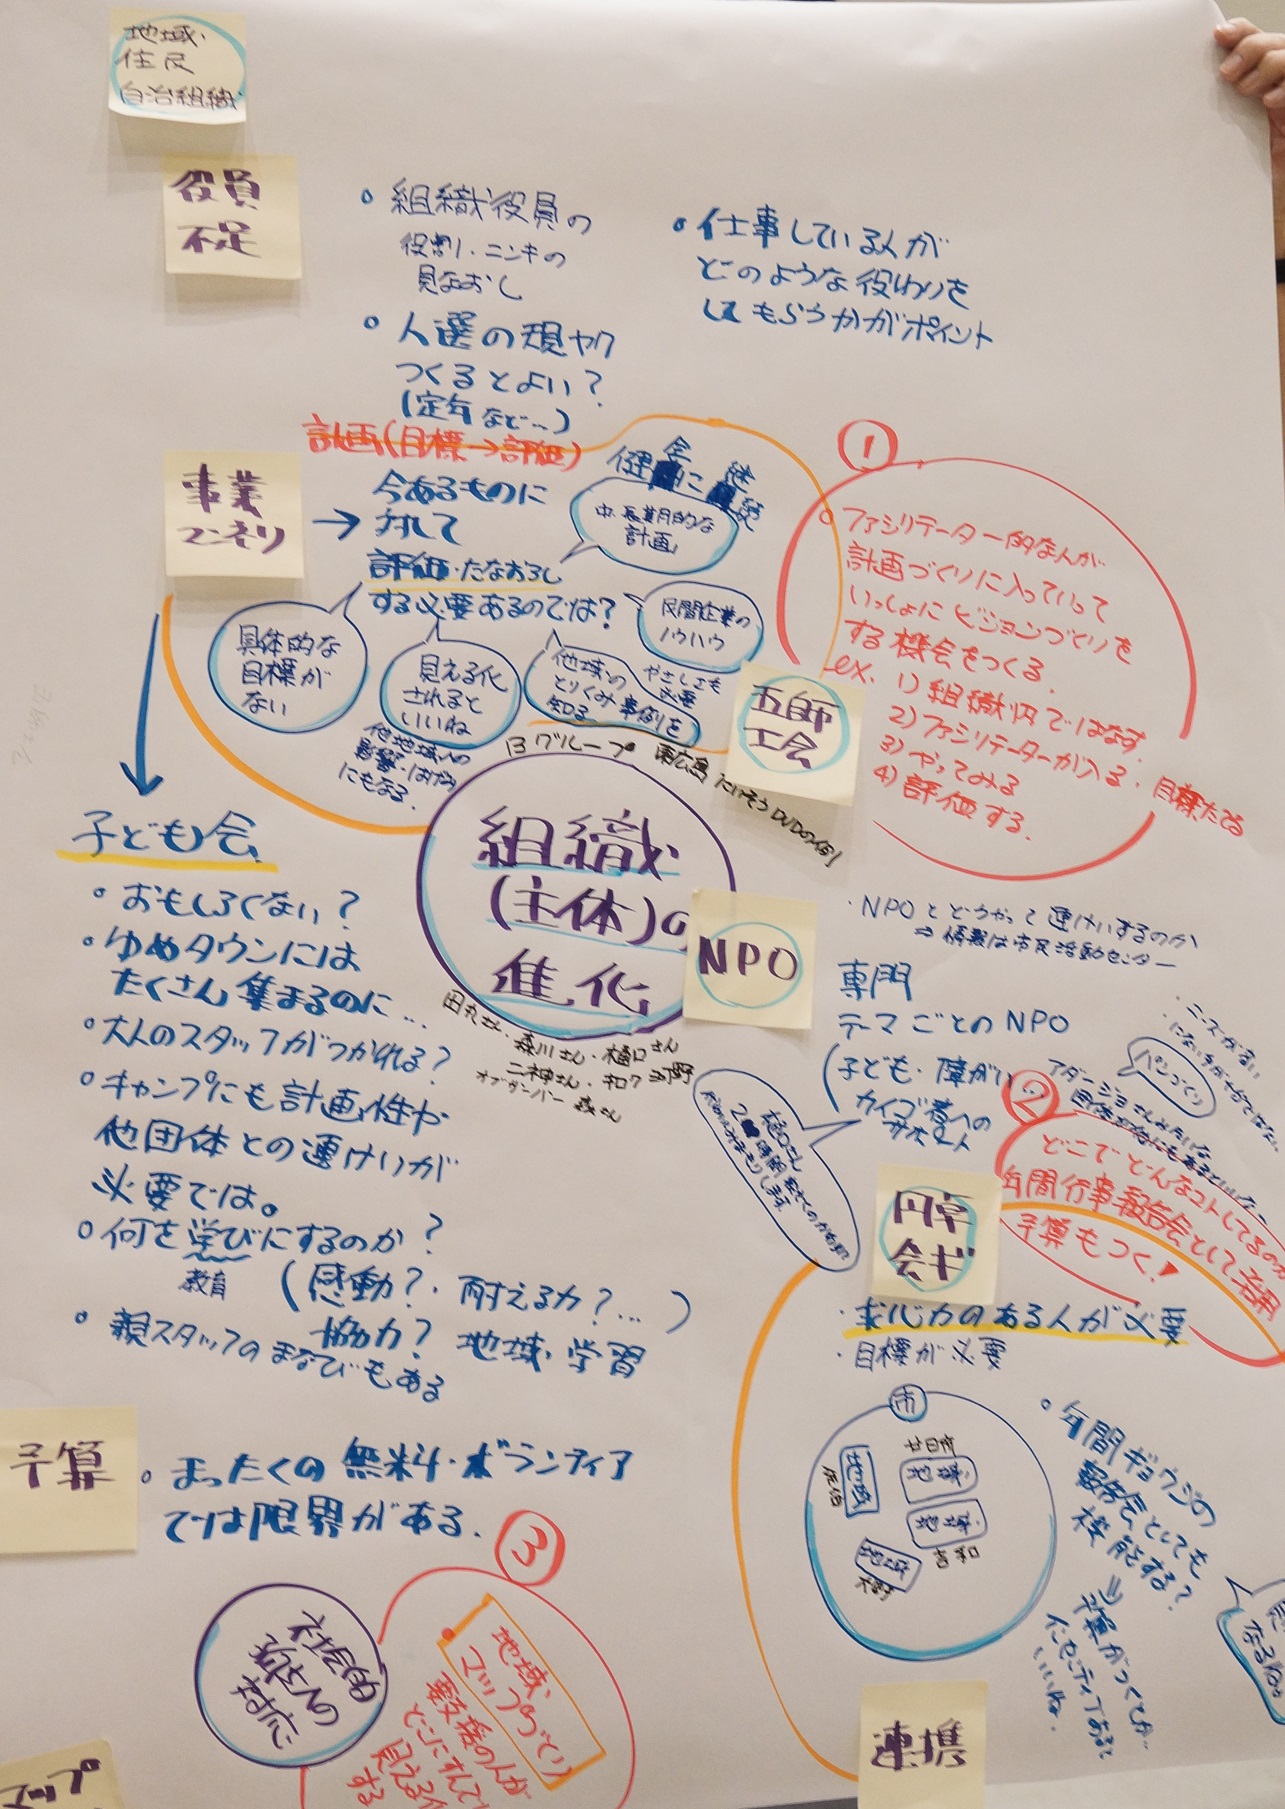 地域・
住民
自治組織
役員
不足
組織役員の
役割・ニンキの
見なおし
人選の規ヤク
つくるとよい?
(定年など…)
仕事している人が
どのような役わりを
してもらうかがポイント
計画(目標→評価)
事業
今あるものに
対して
評価・たなおろし
する必要あるのでは?
健全に継続
中・長期的な
計画
民間企業の
ノウハウ
具体的な
目標が
ない
見える化
されると
いいね
他地域への
影響・はげみ
にもなる。
他地域の
とりくみ事例を
知る
やさしさも
必要
①
ファシリテーター的な人が
計画づくりに入っていって
いっしょにビジョンづくりを
する機会をつくる。
ex. 1)組織内ではなす
2)ファシリテーターが入る・目標たてる
3)やってみる
4)評価する。
工会
Bグループ
組織
(主体)の
進化
森川さん・樋口さん
オブザーバー 森さん
子ども会
おもしろくない?
ゆめタウンには
たくさん集まるのに…
大人のスタッフがつかれる?
キャンプにも計画性や
他団体との連けいが
必要では。
何を学びにするのか?
教育
(感動?・耐える力?…)
協力? 地域・学習
親スタッフのまなびもある
NPO
NPOとどうやって連けいするのか
⇒情報は市民活動センター
専門
テーマごとのNPO
(子ども・障がい
カイゴ者への
パンづくり
②
どこでどんなコトしてるのか
年間行事報告会として活用
予算もつく!
円卓
会ギ
求心力のある人が必要
目標が必要
市
廿日市
地域
地域
吉和
地域
地域
大野
年間ギョウジの
報告会としても
機能する?
予算がつくとか
インセンティブあると
いいね。
予算
まったくの無料・ボランティア
では限界がある。
③
地域
マップづくり
要支援の人が
どこにすんで
見える化
する
連携
マップ